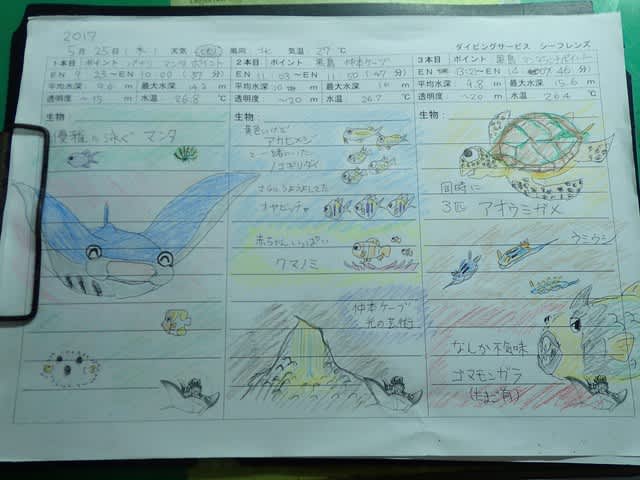 2017
5月25日(木) 天気 くもり 風向 北 気温 27℃
ダイビングサービス シーフレンズ
1本目 ポイント マンタポイント
EN 9:23〜EN 10:00(37分)
平均水深 9.6m 最大水深 14.2m
透明度 〜15m 水温 26.8℃
生物
優雅に泳ぐ マンタ
2本目 ポイント 黒島 仲本ケーブ
EN 11:03〜EN 11:50(47分)
平均水深 m 最大水深 16m
透明度 〜20m 水温 26.7℃
生物
黄色いけど
アカヒメジ
と一緒にいた
ノコギリダイ
オヤビッチャ
赤ちゃんいっぱい
クマノミ
仲本ケーブ
光の芸術
3本目 ポイント 黒島
EN 13:21〜EN 14: 46分)
平均水深 9.8m 最大水深 15.6m
透明度 〜20m 水温 26.4℃
生物
同時に
3匹 アオウミガメ
ウミウシ
なんか不気味
ゴマモンガラ
(たまご有)